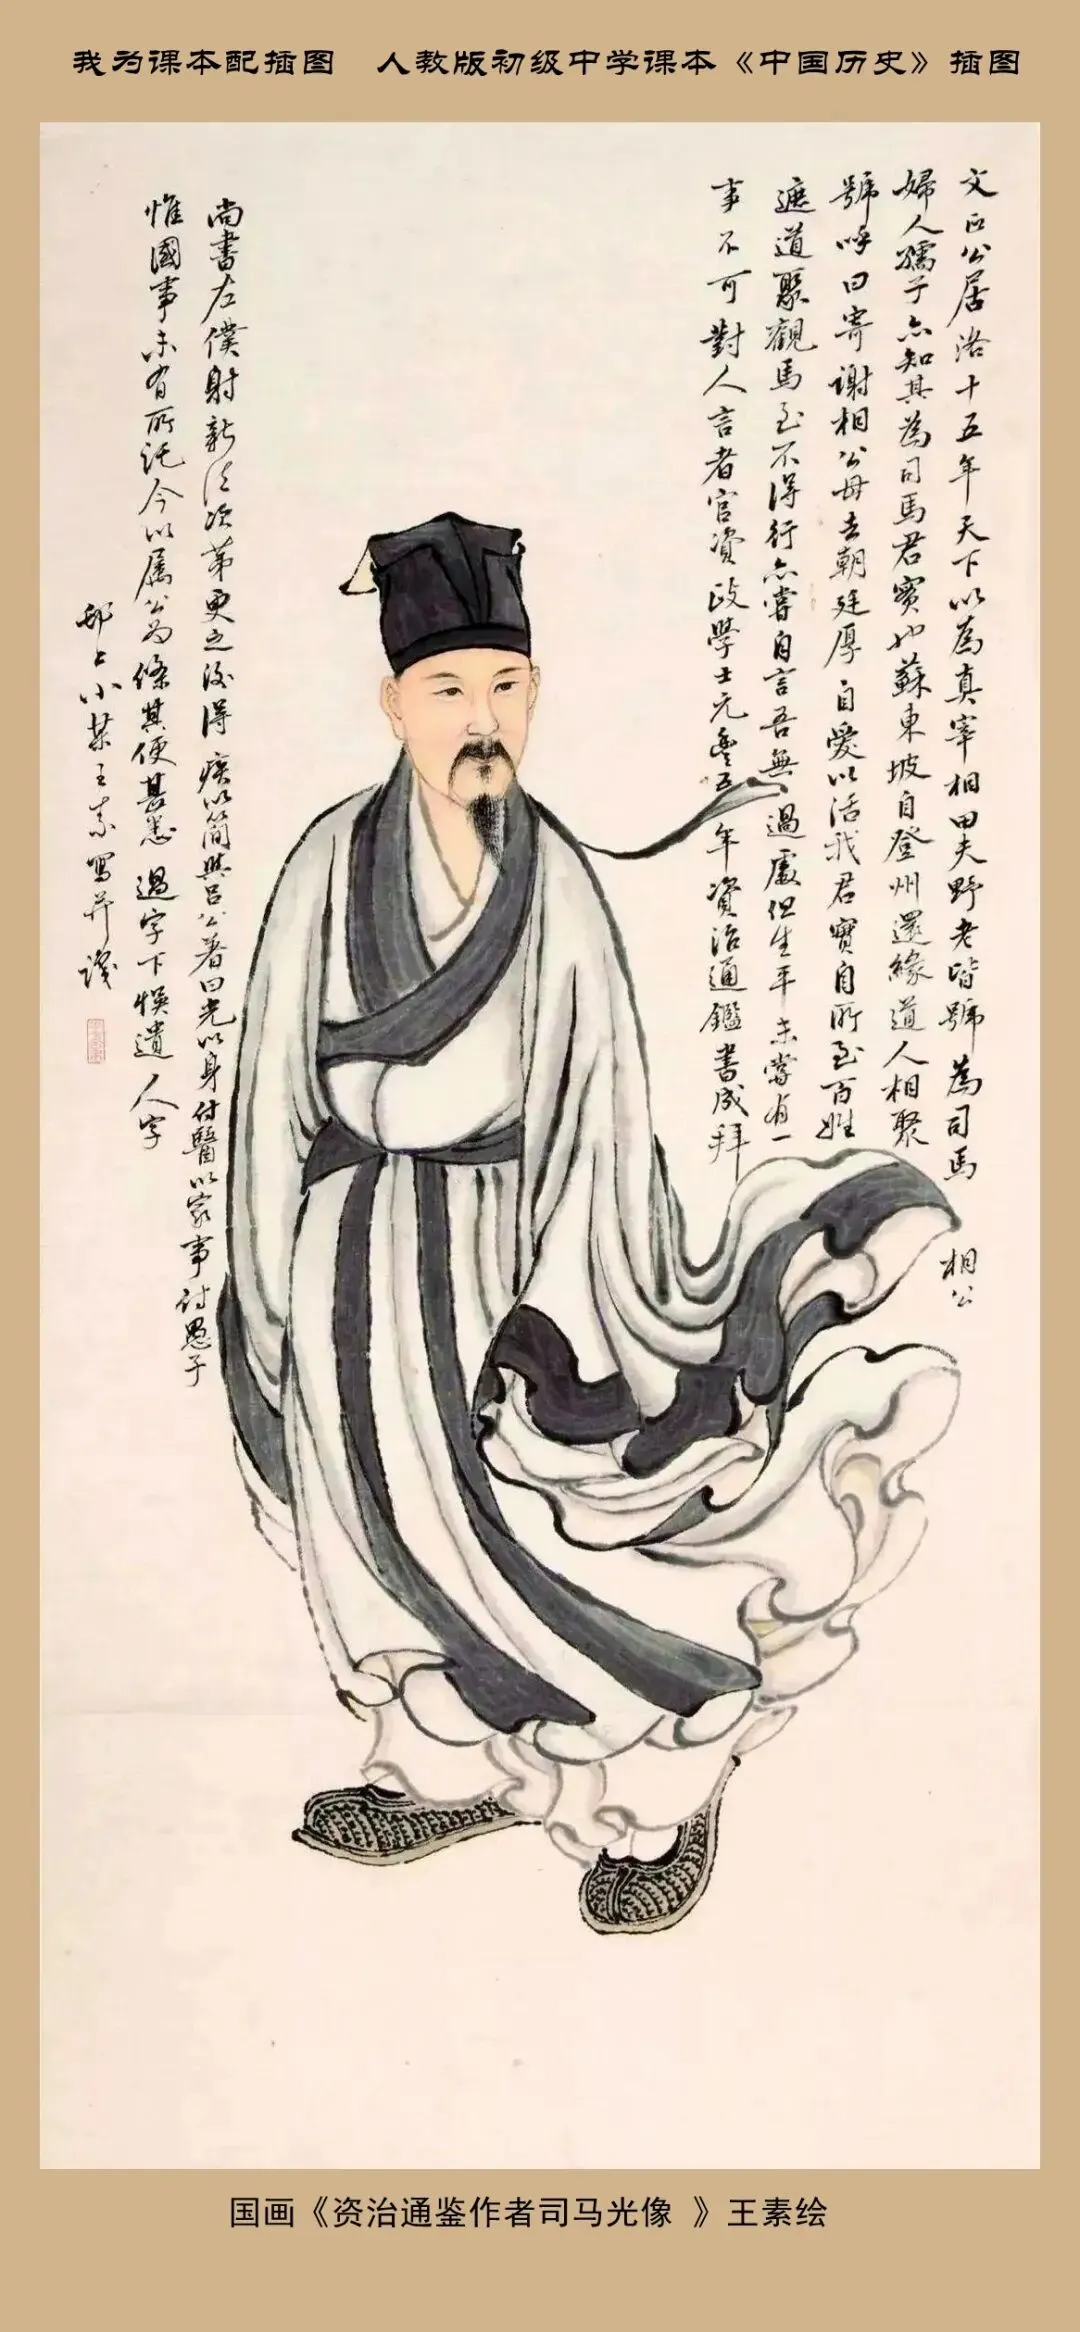 我为课本配插图　人教版初级中学课本《中国历史》插图
文正公居洛十五年天下以為真宰相田夫野老皆號為司馬相公
婦人孺子亦知其為司馬君實也蘇東坡自登州還緣道人相聚
號呼曰寄謝相公毋去朝廷厚自愛以活我君實自所至百姓
遮道聚觀馬至不得行亦嘗自言吾無過處但生平未嘗有一
事不可對人言者官資政學士元豐五年資治通鑑書成拜
尚書左僕射新法次第更之後得疾以簡與呂公著曰光以身付醫以家事付愚子
惟國事未有所託今以屬公为條其便甚悉 過字下悮遺人字
邗上小某王素寫并識
国画《资治通鉴作者司马光像 》王素绘